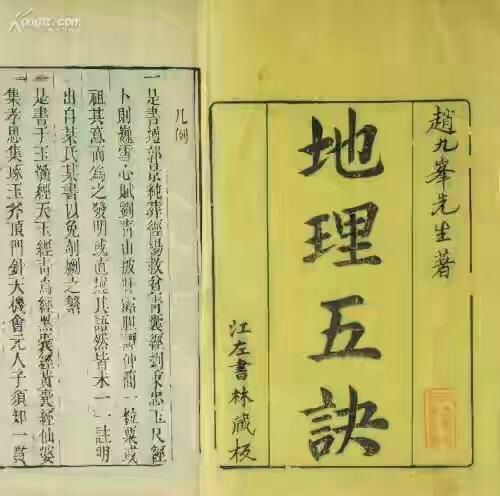 趙九峯先生著
地理五訣
江左書林藏板
凡例
一是書遵郭景純葬經楊救貧青囊經劉秉忠玉尺經
卜則巍雪心賦劉青山披肝露胆譚仲簡一粒粟或
祖其意而為之發明或直述其語然皆未一一註明
出自某氏某書以免剞劂之繁
一是書于玉髓經天玉經青烏經黑囊經黃囊經仙婆
集孝思集琢玉斧頂門針天機會元人子須知一貫